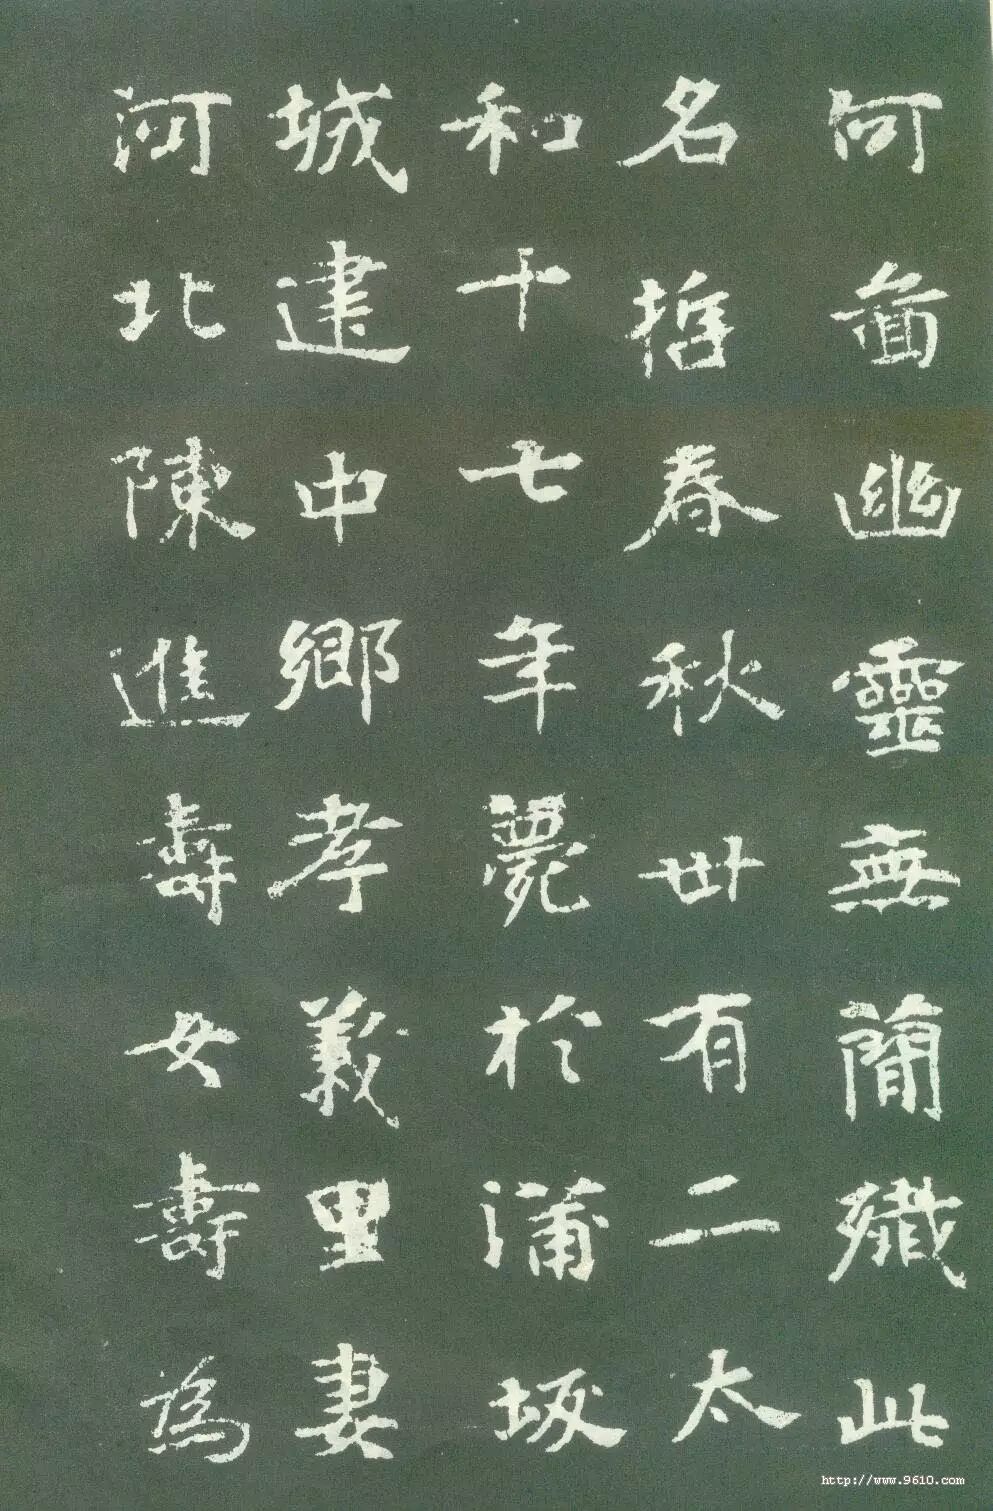 何圖幽靈無簡殲此
名哲春秋卅有二太
和十七年薨於蒲坂
城建中鄉孝義里妻
河北陳進壽女壽為
http://www.9610.com